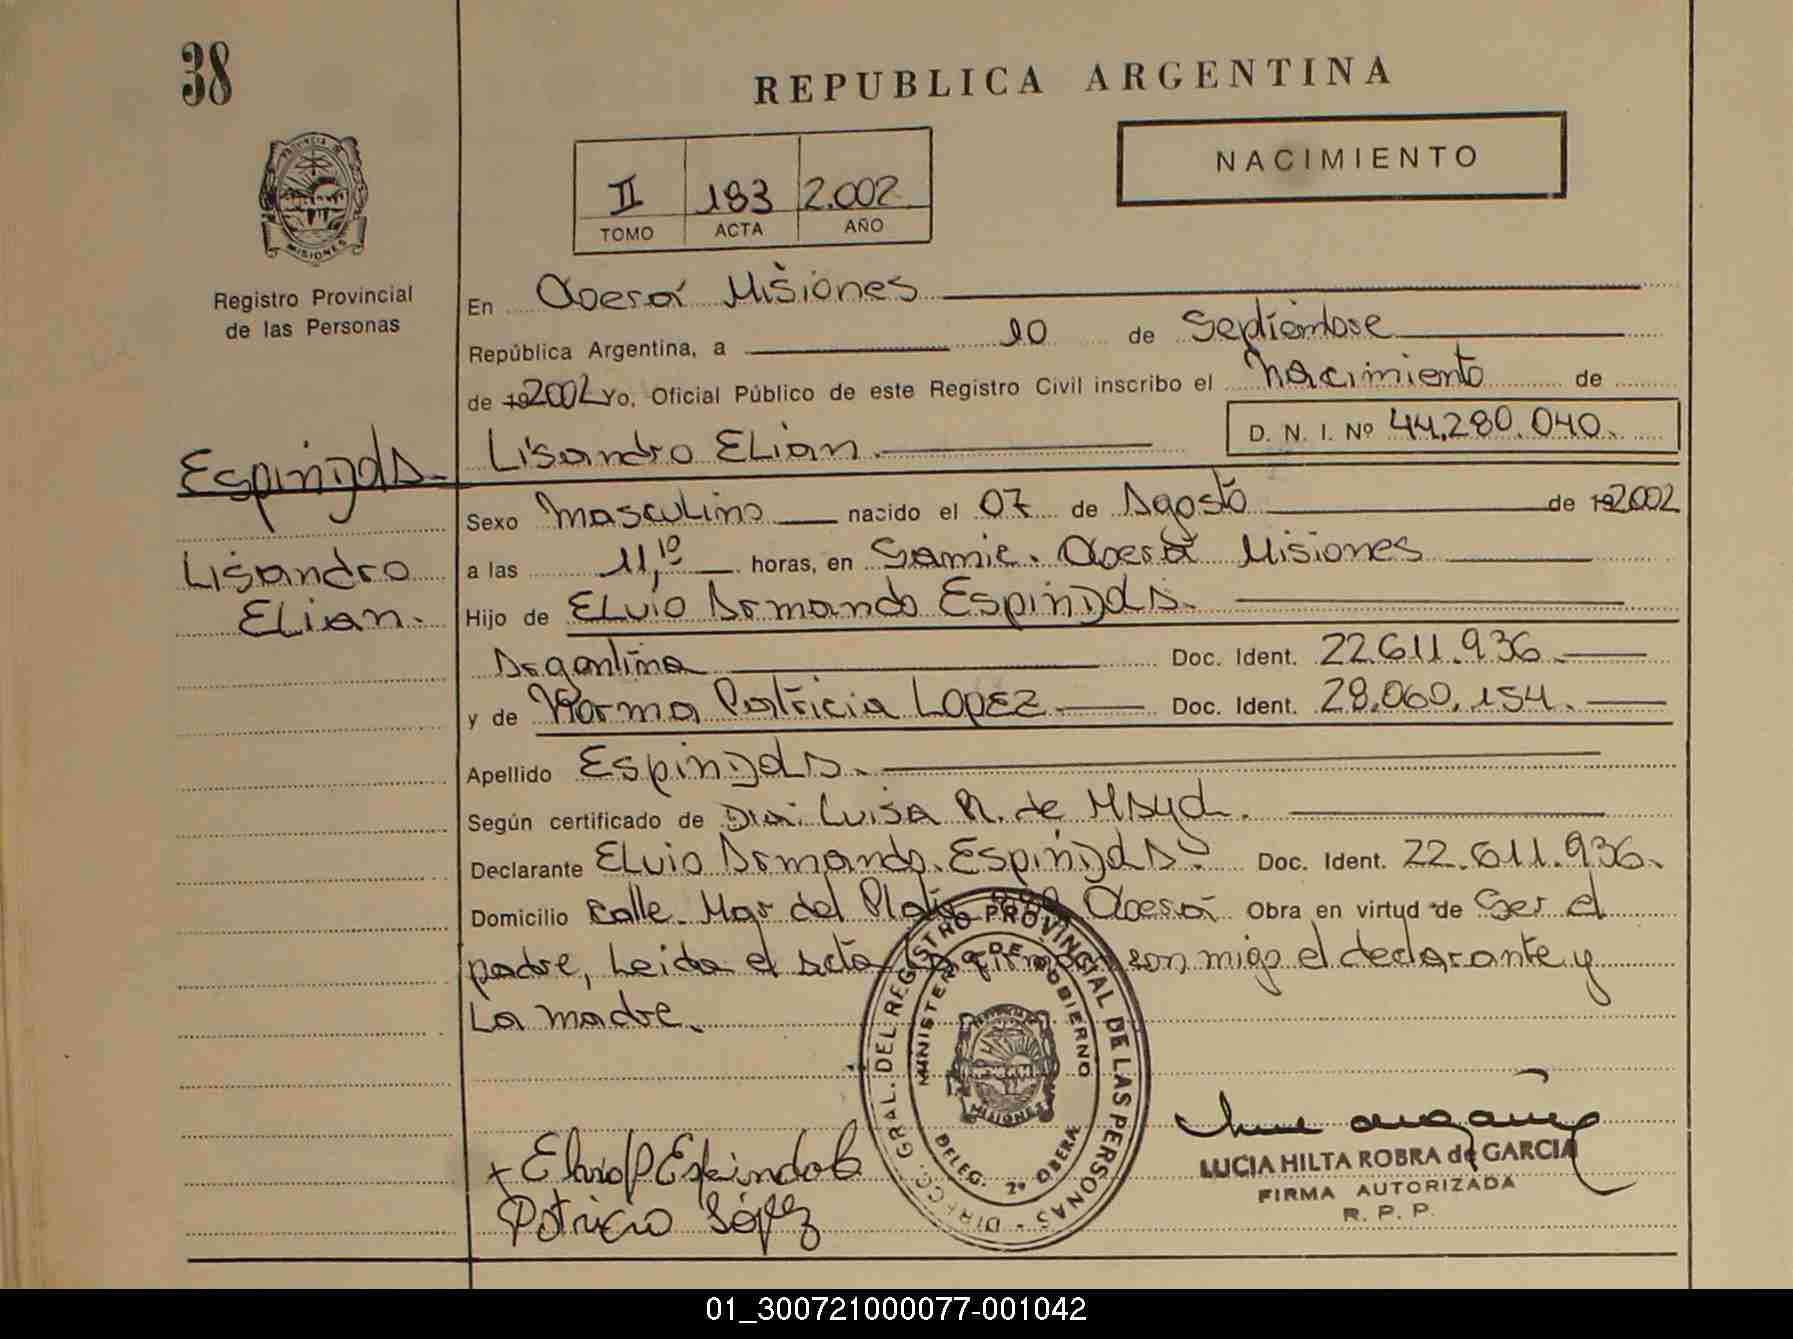 38
REPUBLICA ARGENTINA
PROVINCIA DE
MISIONES
Registro Provincial
de las Personas
II 183 2.002
TOMO ACTA AÑO
NACIMIENTO
En Oberá Misiones
República Argentina, a 10 de Septiembre
de 19 2002 Yo, Oficial Público de este Registro Civil inscribo el Nacimiento de
D. N. I. Nº 44.280.040.
Espindola. Lisandro Elian.
Sexo Masculino nacido el 07 de Agosto de 19 2002
Lisandro
Elian.
a las 11,10 horas, en Samic. Oberá Misiones
Hijo de Elvio Armando Espindola.
Argentina Doc. Ident. 22.611.936
y de Norma Patricia Lopez Doc. Ident. 28.060.154.
Apellido Espindola.
Según certificado de Dra. Luisa R. de
Declarante Elvio Armando Espindola. Doc. Ident. 22.611.936.
Domicilio Calle Mar del Plata Oberá Obra en virtud de Ser el
padre, Leida el acta firman con migo el declarante y
La madre.
DIRECC. GRAL. DEL REGISTRO PROVINCIAL DE LAS PERSONAS
MINISTERIO DE GOBIERNO
MISIONES
DELEG. 2º OBERA
Espindola
Patricia López
LUCIA HILTA ROBRA de GARCIA
FIRMA AUTORIZADA
R. P. P.
01_300721000077-001042